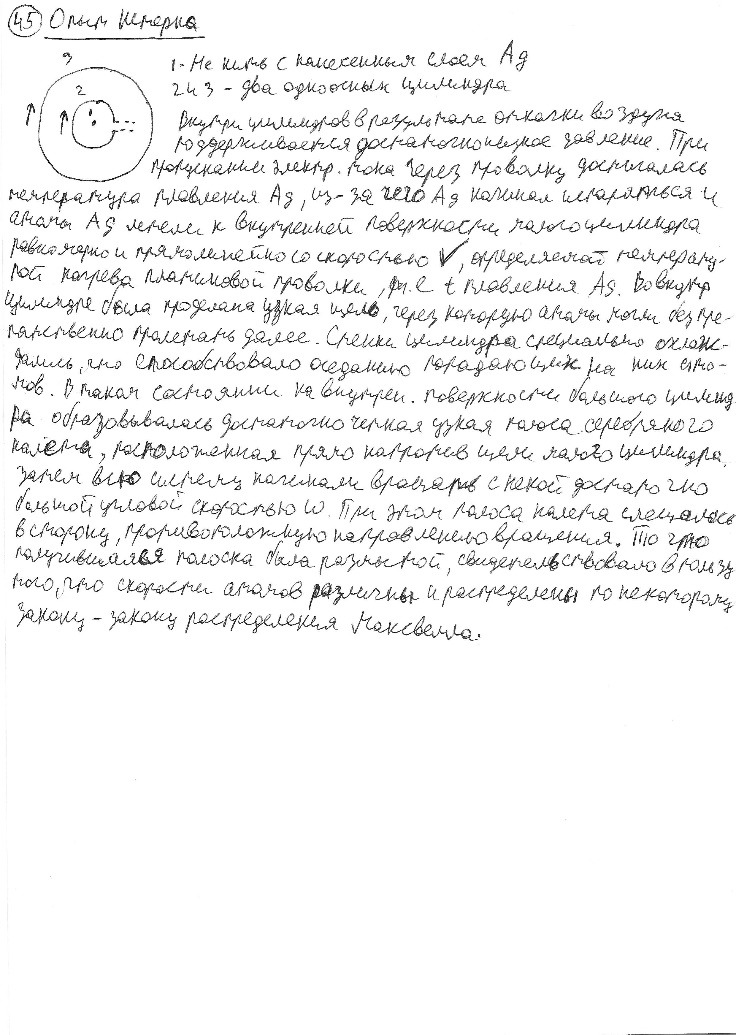 45 Опыт Штерна
3
2
1 - Не нить с нанесенным слоем Ag
2 и 3 - два одноосных цилиндра
Внутри цилиндров в результате откачки воздуха
поддерживается достаточно низкое давление. При
пропускании электр. тока через проволку достигалась
температура плавления Ag, из-за чего Ag начинал испаряться и
атомы Ag летели к внутренней поверхности малого цилиндра
равномерно и прямолинейно со скоростью V, определяемой температу-
рой нагрева платиновой проволки, т.е t плавления Ag. Во внутр
цилиндре была проделана узкая щель, через которую атомы могли беспре-
пятственно пролетать далее. Стенки цилиндра специально охлаж-
дались, что способствовало оседанию попадающих на них ато-
мов. В таком состоянии на внутрен. поверхности большого цилинд
ра образовывалась достаточно четкая узкая полоса серебряного
налета, расположенная прямо напротив щели малого цилиндра.
Затем всю систему начинали вращать с некой достаточно
большой угловой скоростью ω. При этом полоса налета смещалась
в сторону, противоположную направлению вращения. То что
получившаяся полоска была размытой, свидетельствовало в пользу
того, что скорости атомов различны и распределены по некоторому
закону - закону распределения Максвелла.